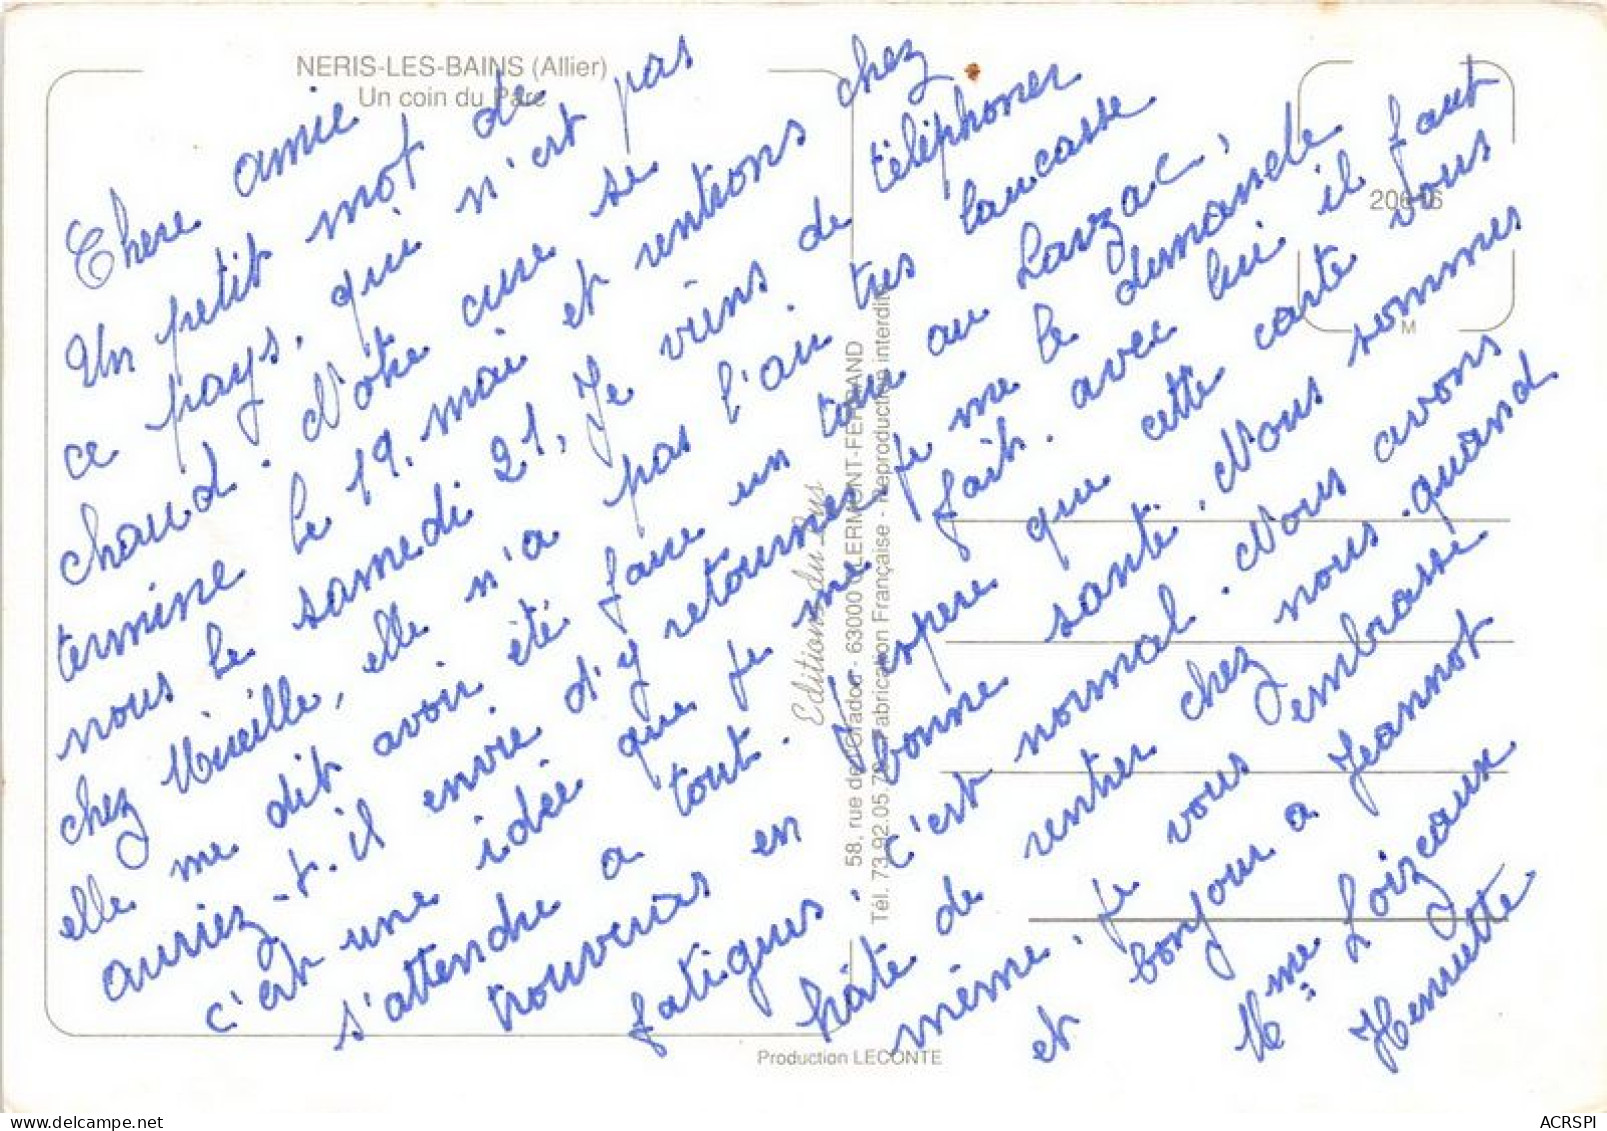 NERIS-LES-BAINS (Allier)
Un coin du Parc
Chere amie
Un petit mot de
ce pays, qui n'est pas
chaud. Notre cure se
termine le 19. mai et rentrons chez
nous le samedi 21, Je viens de téléphoner
chez Mireille, elle n'a pas l'air tres tancasse
elle me dit avoir été faire un tour au Larzac,
auriez-t-il envie d'y retourner je me le demande
c'est une idée que je me fait. avec lui il faut
s'attendre a tout. J'espere que cette carte vous
trouveras en bonne santé. Nous sommes
fatigues, c'est normal. Nous avons
hâte de rentrer chez nous. quand
même. Je vous embrasse
et bonjour a Jeannot
Mme Loizeaux
Henriette
20646
M
Editions du Lys
58, rue de l'Oradou - 63000 CLERMONT-FERRAND
Tél. 73.92.05.78 - Fabrication Française - Reproduction interdite
Production LECONTE
ACRSPI